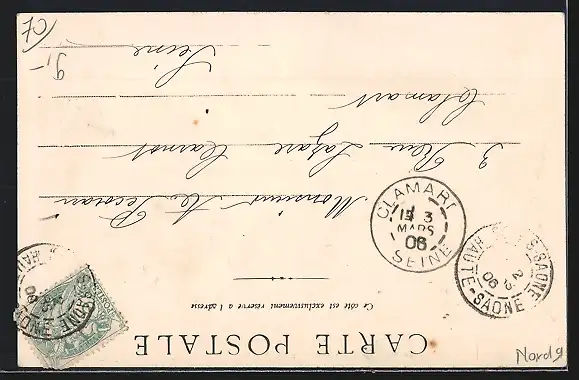 CARTE POSTALE
Ce côté est exclusivement réservé à l'adresse
Monsieur
3 Rue Lazare Carnot
Clamart
Seine
CLAMART
15 3
MARS
06
SEINE
2-3
06
HAUTE-SAONE
HAUTE-SAONE
06
9,-
Nord 9